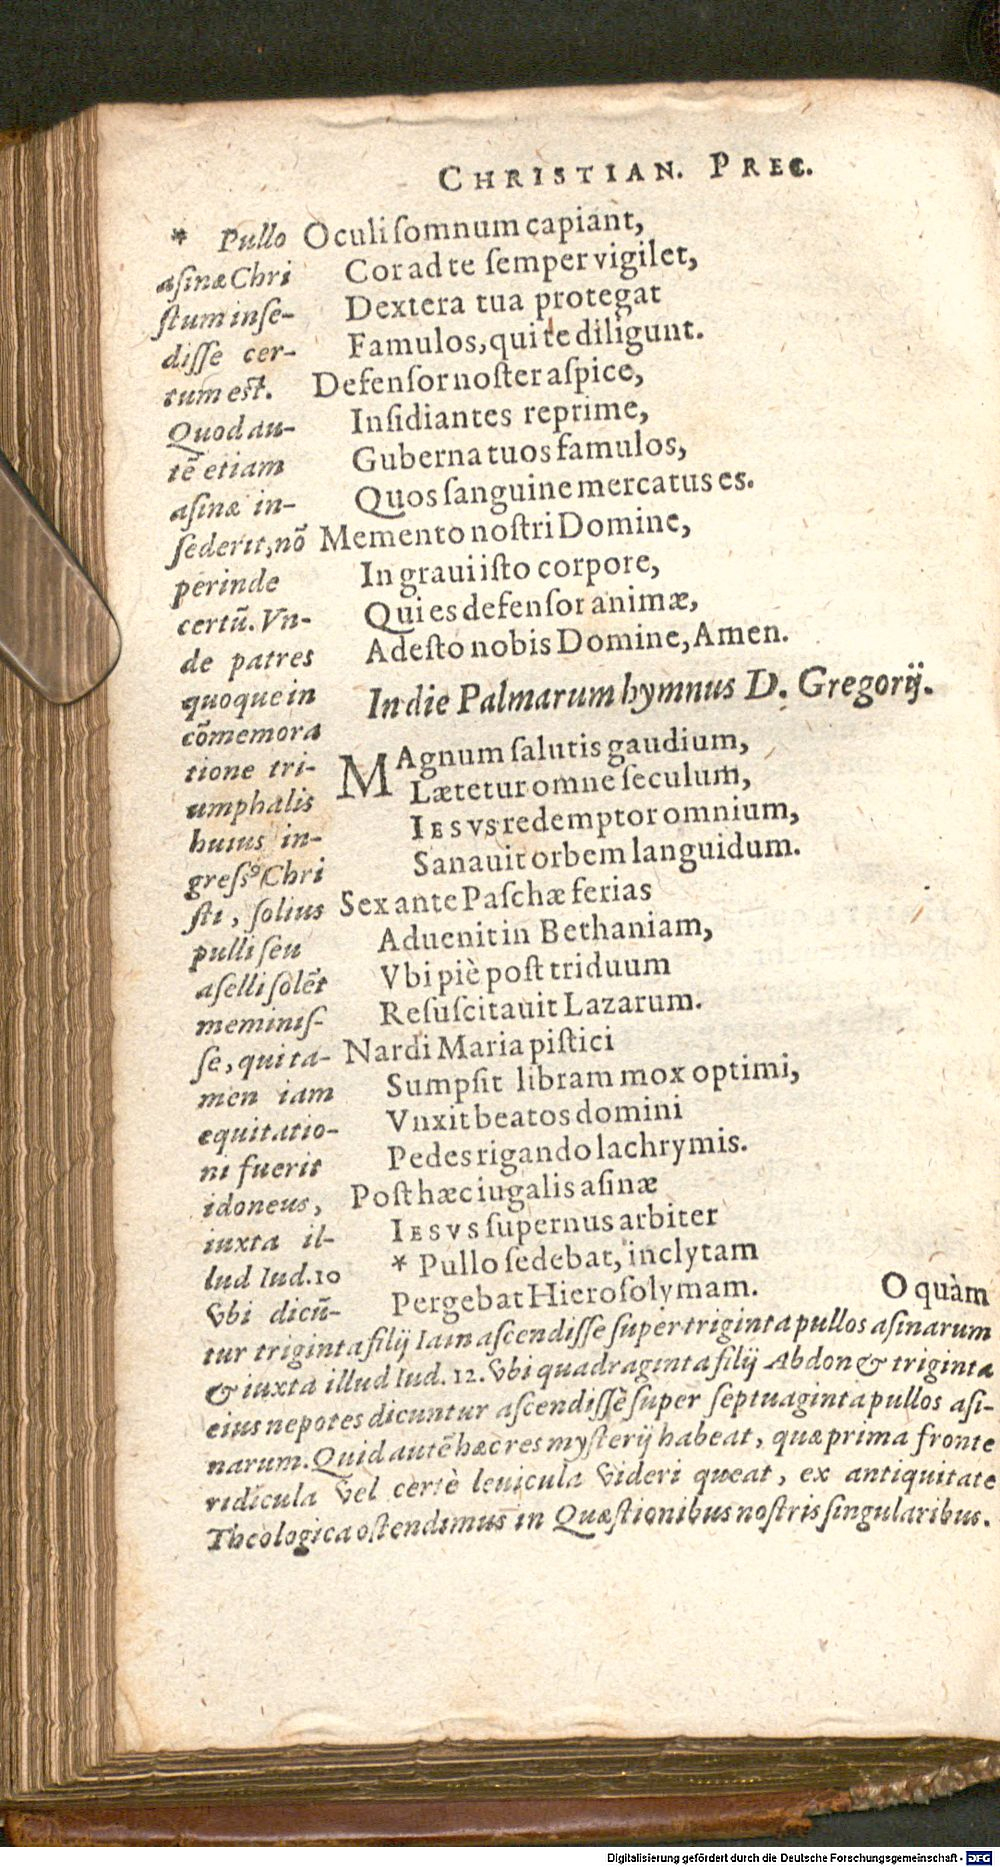 CHRISTIAN. PREC.
Oculi ſomnum capiant,
Cor ad te ſemper vigilet,
Dextera tua protegat
Famulos, qui te diligunt.
Defenſor noſter aſpice,
Inſidiantes reprime,
Guberna tuos famulos,
Quos ſanguine mercatus es.
Memento noſtri Domine,
In graui iſto corpore,
Qui es defenſor animæ,
Adeſto nobis Domine, Amen.
In die Palmarum hymnus D. Gregorij.
MAgnum ſalutis gaudium,
Lætetur omne ſeculum,
IESVS redemptor omnium,
Sanauit orbem languidum.
Sex ante Paſchæ ferias
Aduenit in Bethaniam,
Vbi piè poſt triduum
Reſuſcitauit Lazarum.
Nardi Maria piſtici
Sumpſit libram mox optimi,
Vnxit beatos domini
Pedes rigando lachrymis.
Poſt hæc iugalis aſinæ
IESVS ſupernus arbiter
* Pullo ſedebat, inclytam
Pergebat Hieroſolymam.
O quàm
* Pullo
aſinæ Chri
ſtum inſe-
diſſe cer-
tum eſt.
Quod au-
tē etiam
aſinæ in-
ſederit, nō
perinde
certū. Vn-
de patres
quoque in
cōmemora
tione tri-
umphalis
huius in-
greſsꝰ Chri
ſti, ſolius
pulli ſeu
aſelli ſolēt
meminiſ-
ſe, qui ta-
men iam
equitatio-
ni fuerit
idoneus,
iuxta il-
lud Iud. 10
vbi dicū-
tur triginta filij Iair aſcendiſſe ſuper triginta pullos aſinarum
& iuxta illud Iud. 12. vbi quadraginta filij Abdon & triginta
eius nepotes dicuntur aſcendiſſe ſuper ſeptuaginta pullos aſi-
narum. Quid autē hæc res myſterij habeat, quæ prima fronte
ridicula vel certè leuicula videri queat, ex antiquitate
Theologica oſtendimus in Quæſtionibus noſtris ſingularibus.
Digitalisierung gefördert durch die Deutsche Forschungsgemeinschaft - DFG